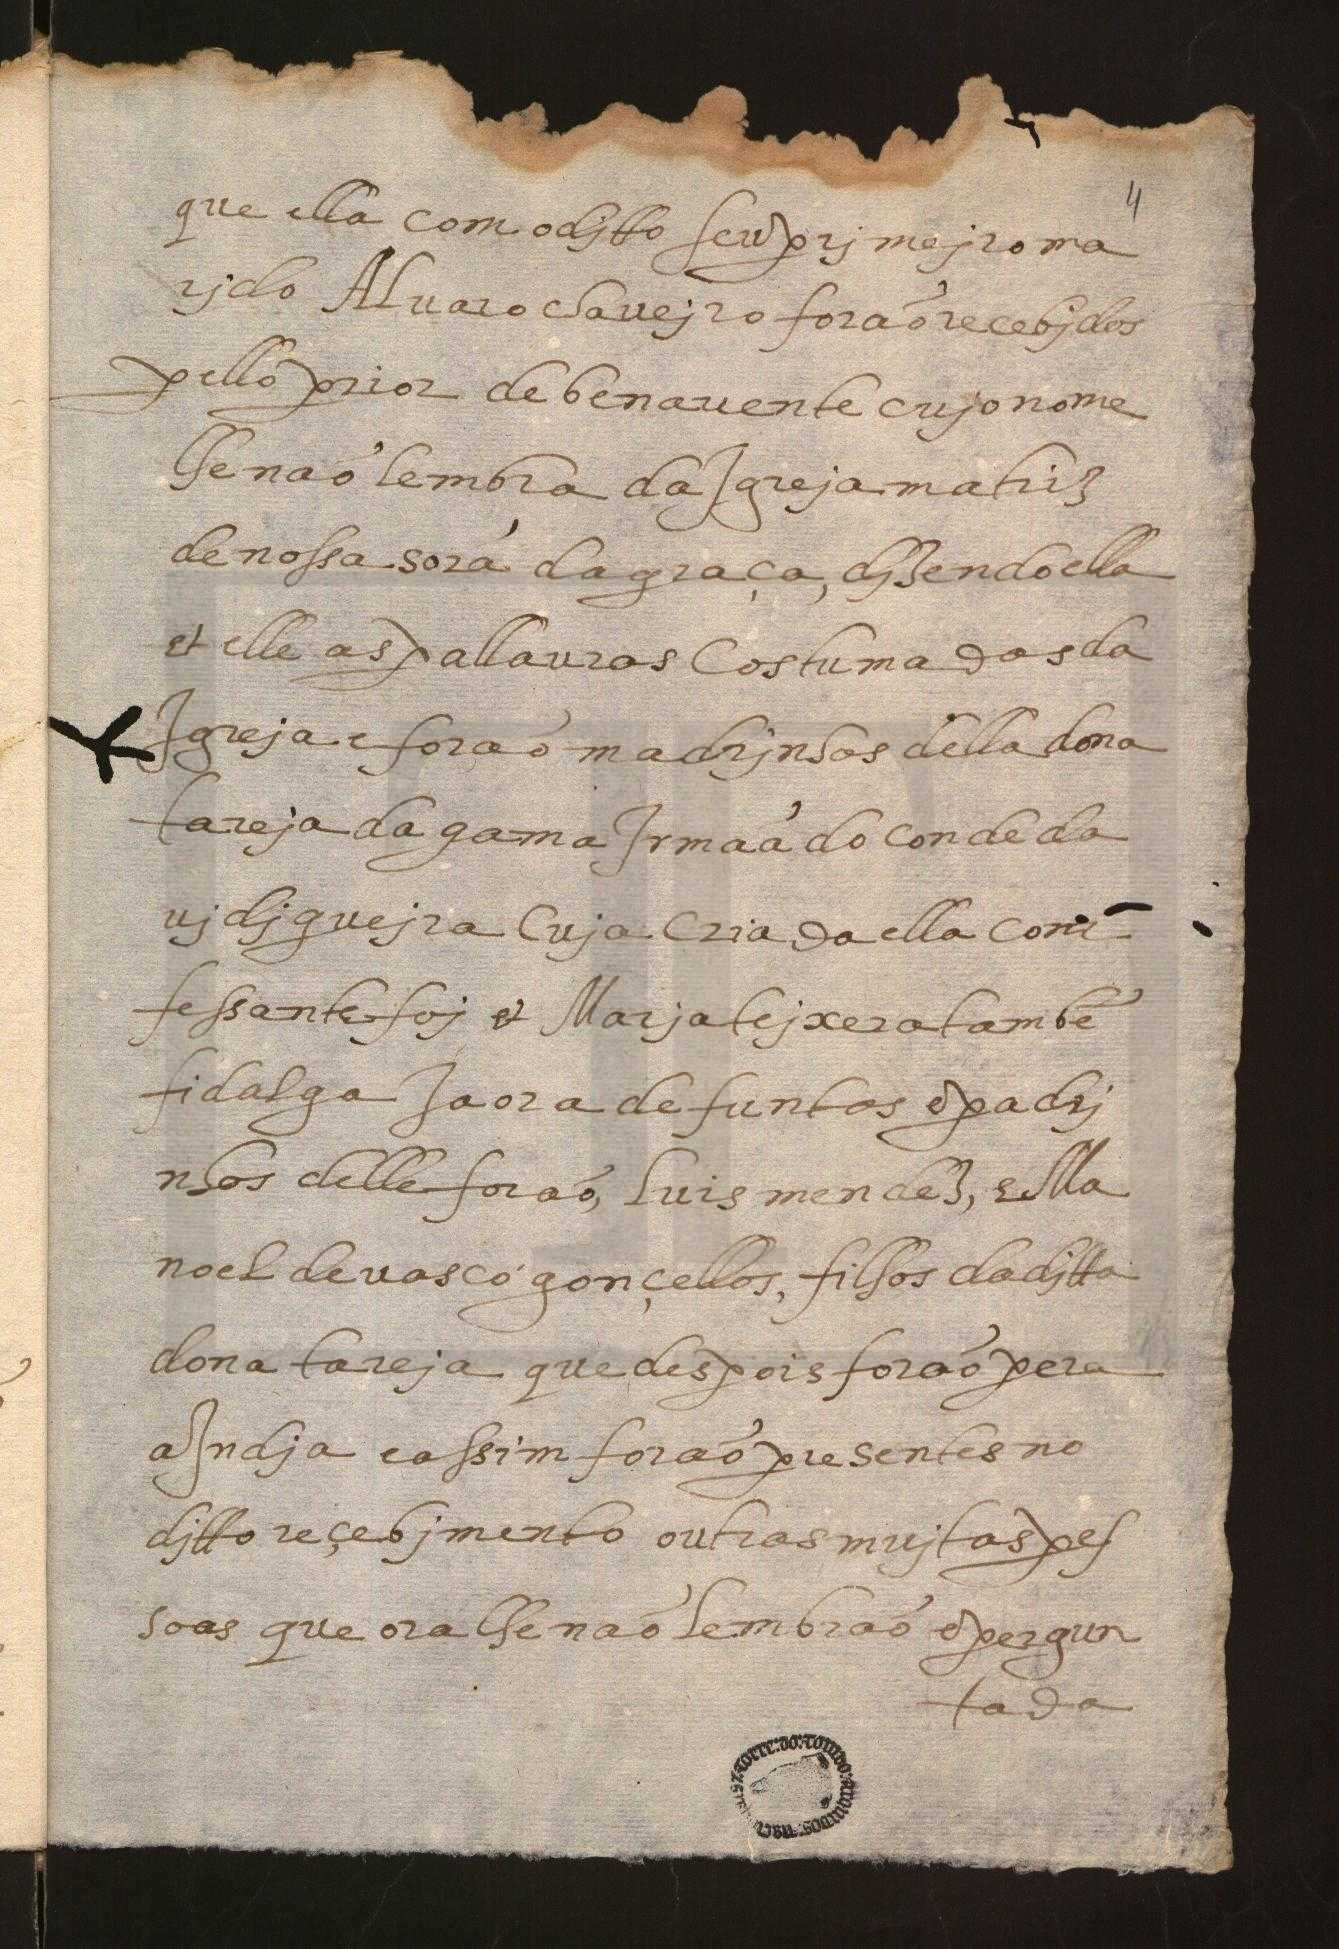 4
que ella com o djtto seu prjmejro ma
rjdo Alvaro chavejro foraõ recebjdos
pello prior de benavente cujo nome
lhe naõ lembra da Igreja matriz
de nossa sorá da graça, djzendo ella
et elle as pallavras Costumadas da
Igreja e foraõ madrjnhas della dona
tareja da gama Irmaã do conde da
vjdjgvejra Cuja Criada ella con-
fessante foj et Marja tejxera també
fidalga Ja ora defuntas e padrj
nhos delle foraõ, luis mendez, e Ma
noel de vascogonçellos, filhos da djtta
dona tareja que despois foraõ pera
a Indja e assim foraõ presentes no
djtto reçebjmento outras mujtas pes
soas que ora lhe naõ lembraõ e pergun
tada